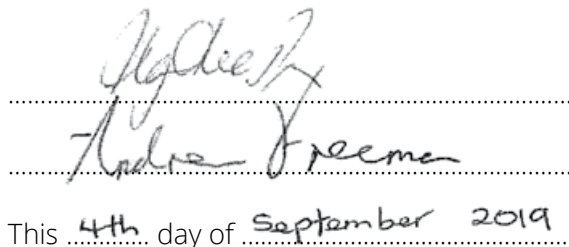 Andrew Freeman
This 4th day of September 2019